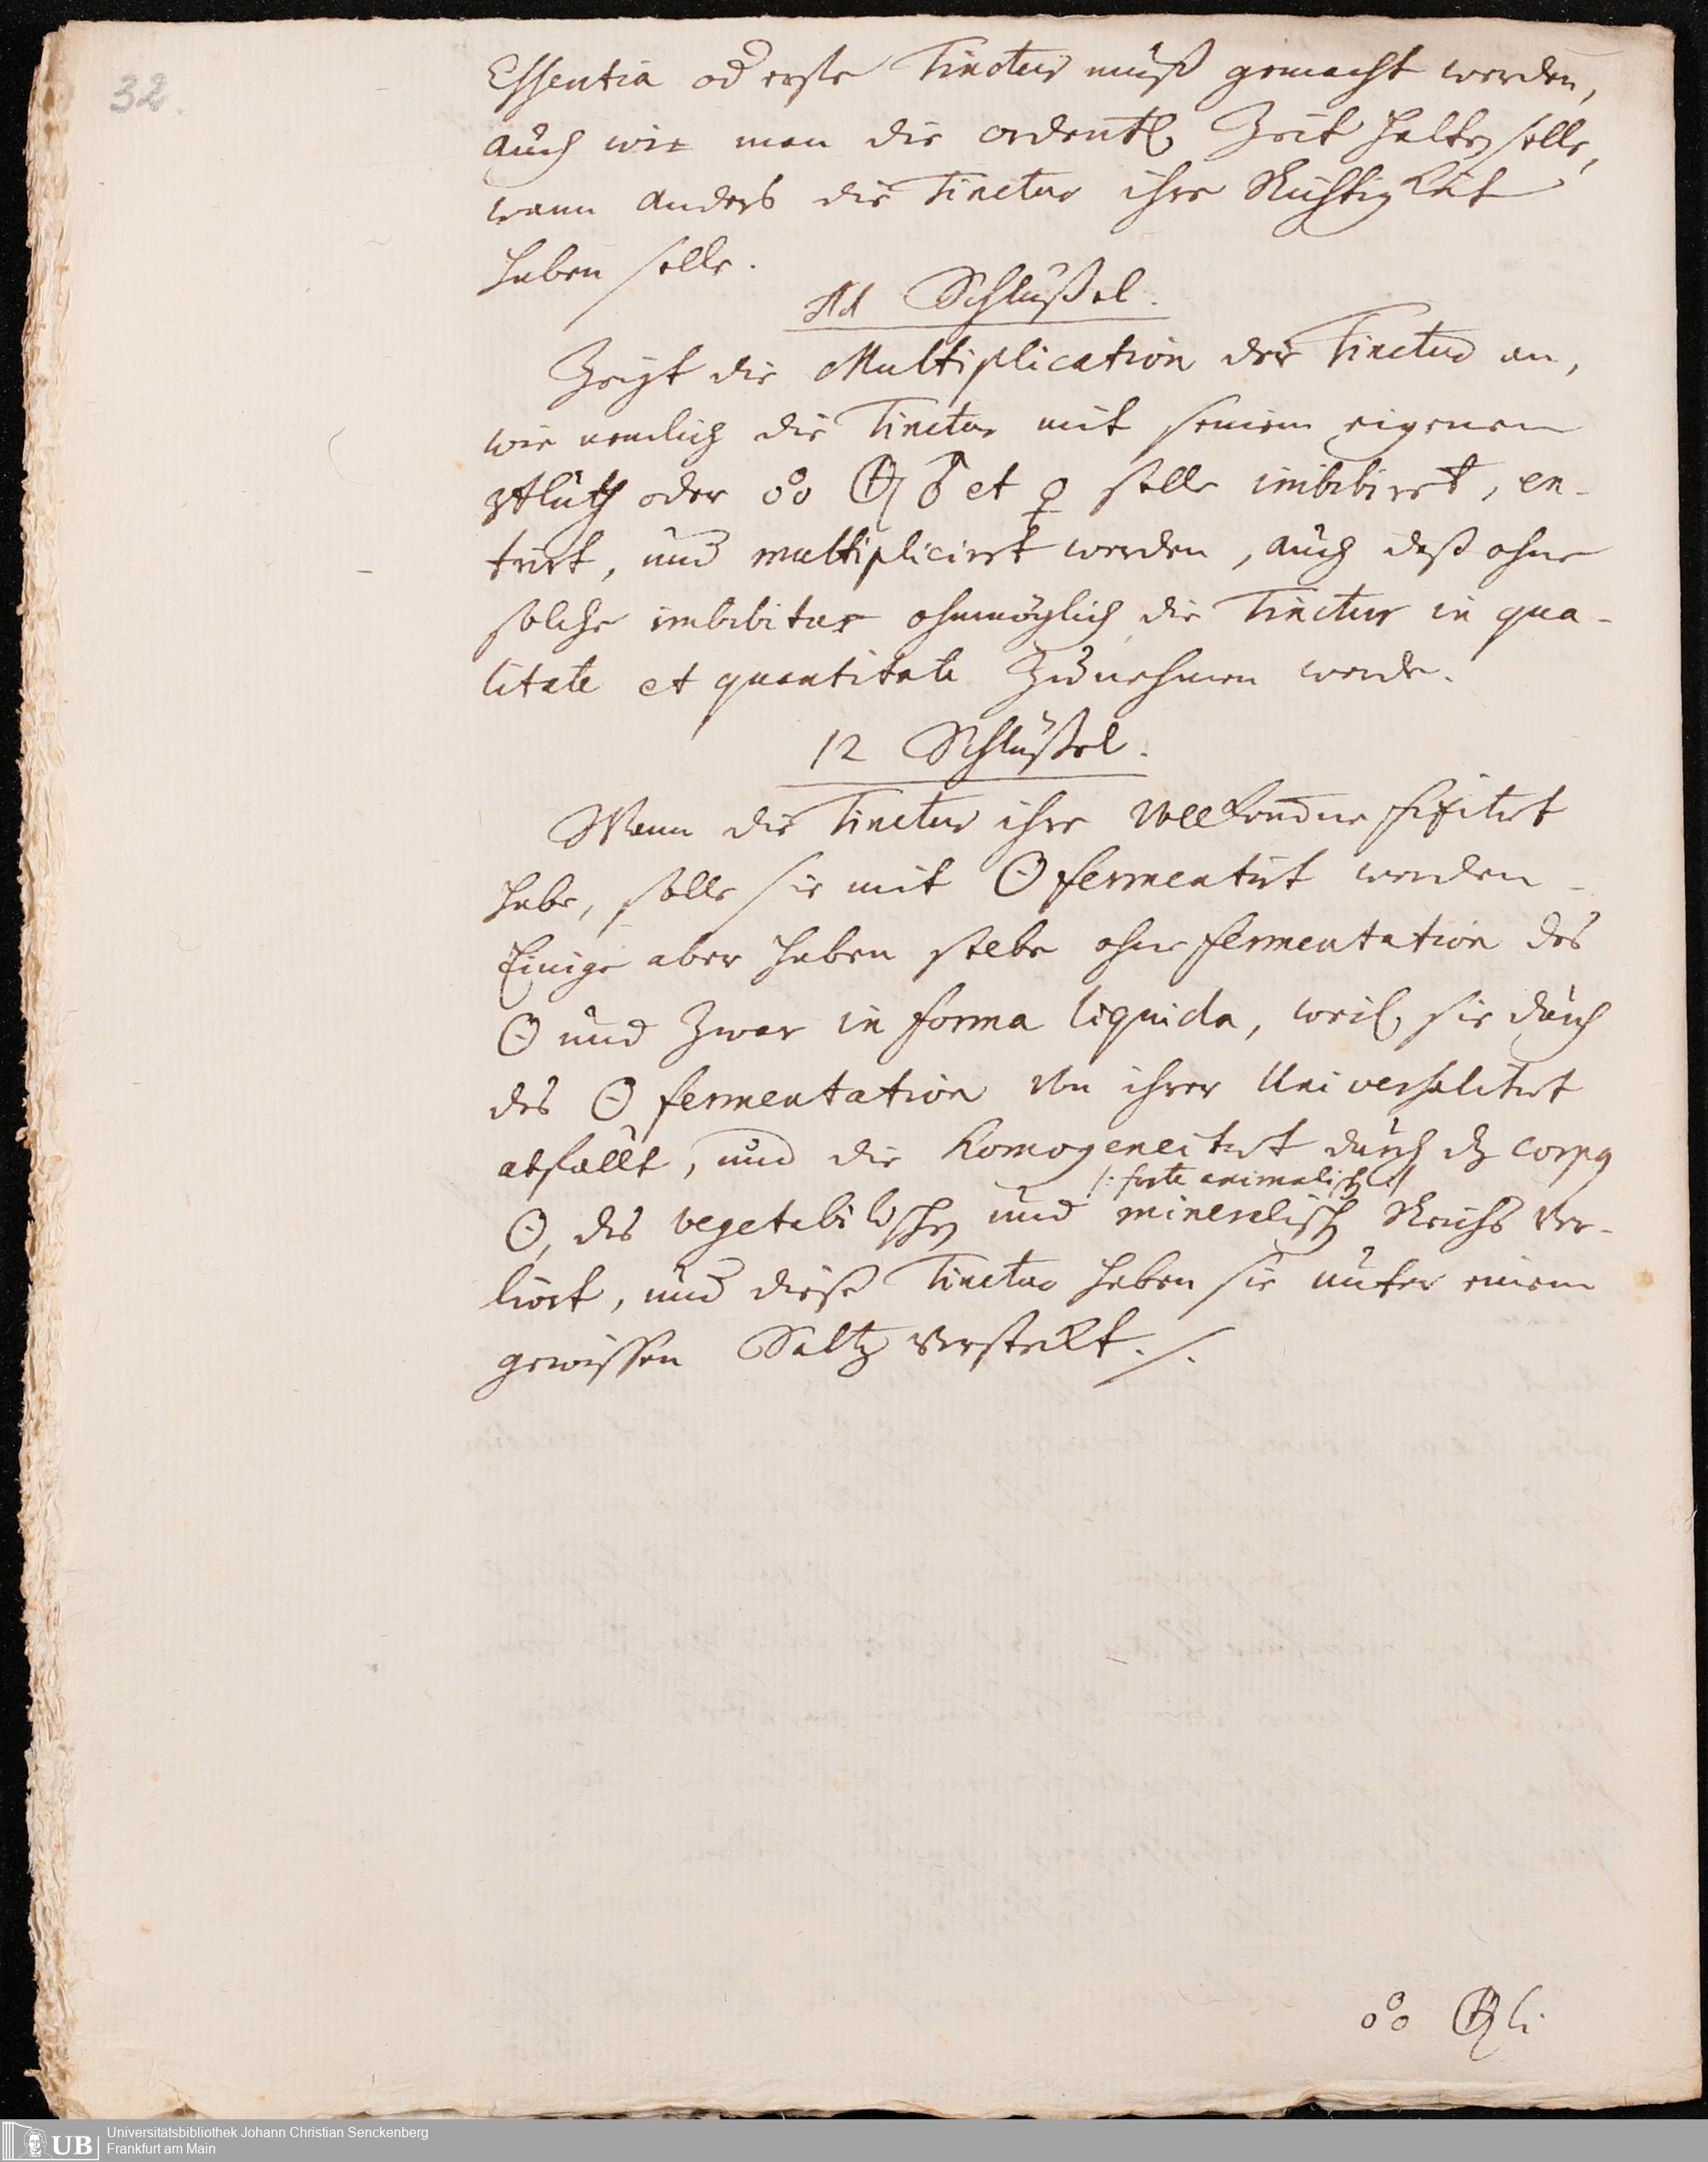 32.
Essentia od erste Tinctur muß gemacht werden,
auch wie man die ordentl. Zeit halten solle,
wann anders die Tinctur ihre Richtigkeit
haben solle.
11 Schlüßel.
Zeigt die Multiplication der Tinctur an,
wie nemlich die Tinctur mit seinem eigenen
Bluth oder ♂ et ♀ solle imbibirt, en-
trirt, und multiplicirt werden, auch daß ohne
solche imbibitur ohnmöglich die Tinctur in qua-
litate et quantitate Zunehmen werde.
12 Schlüßel.
Wann die Tinctur ihre Vollkomne fixitæt
habe, solle sie mit ☉ fermentirt werden
Einige aber haben selbe ohne fermentation des
☉ und Zwar in forma liquida, weil sie durch
des ☉ fermentation von ihrer Universalitæt
abfallt, und die homogeneitæt durch dz corpq
/: forte animalisch :/
☉, des vegetabilischen und mineralischen Reichs ver-
liert, und diese Tinctur haben sie unter einem
gewissen Saltz versteckt ./.
li
UB
Universitätsbibliothek Johann Christian Senckenberg
Frankfurt am Main